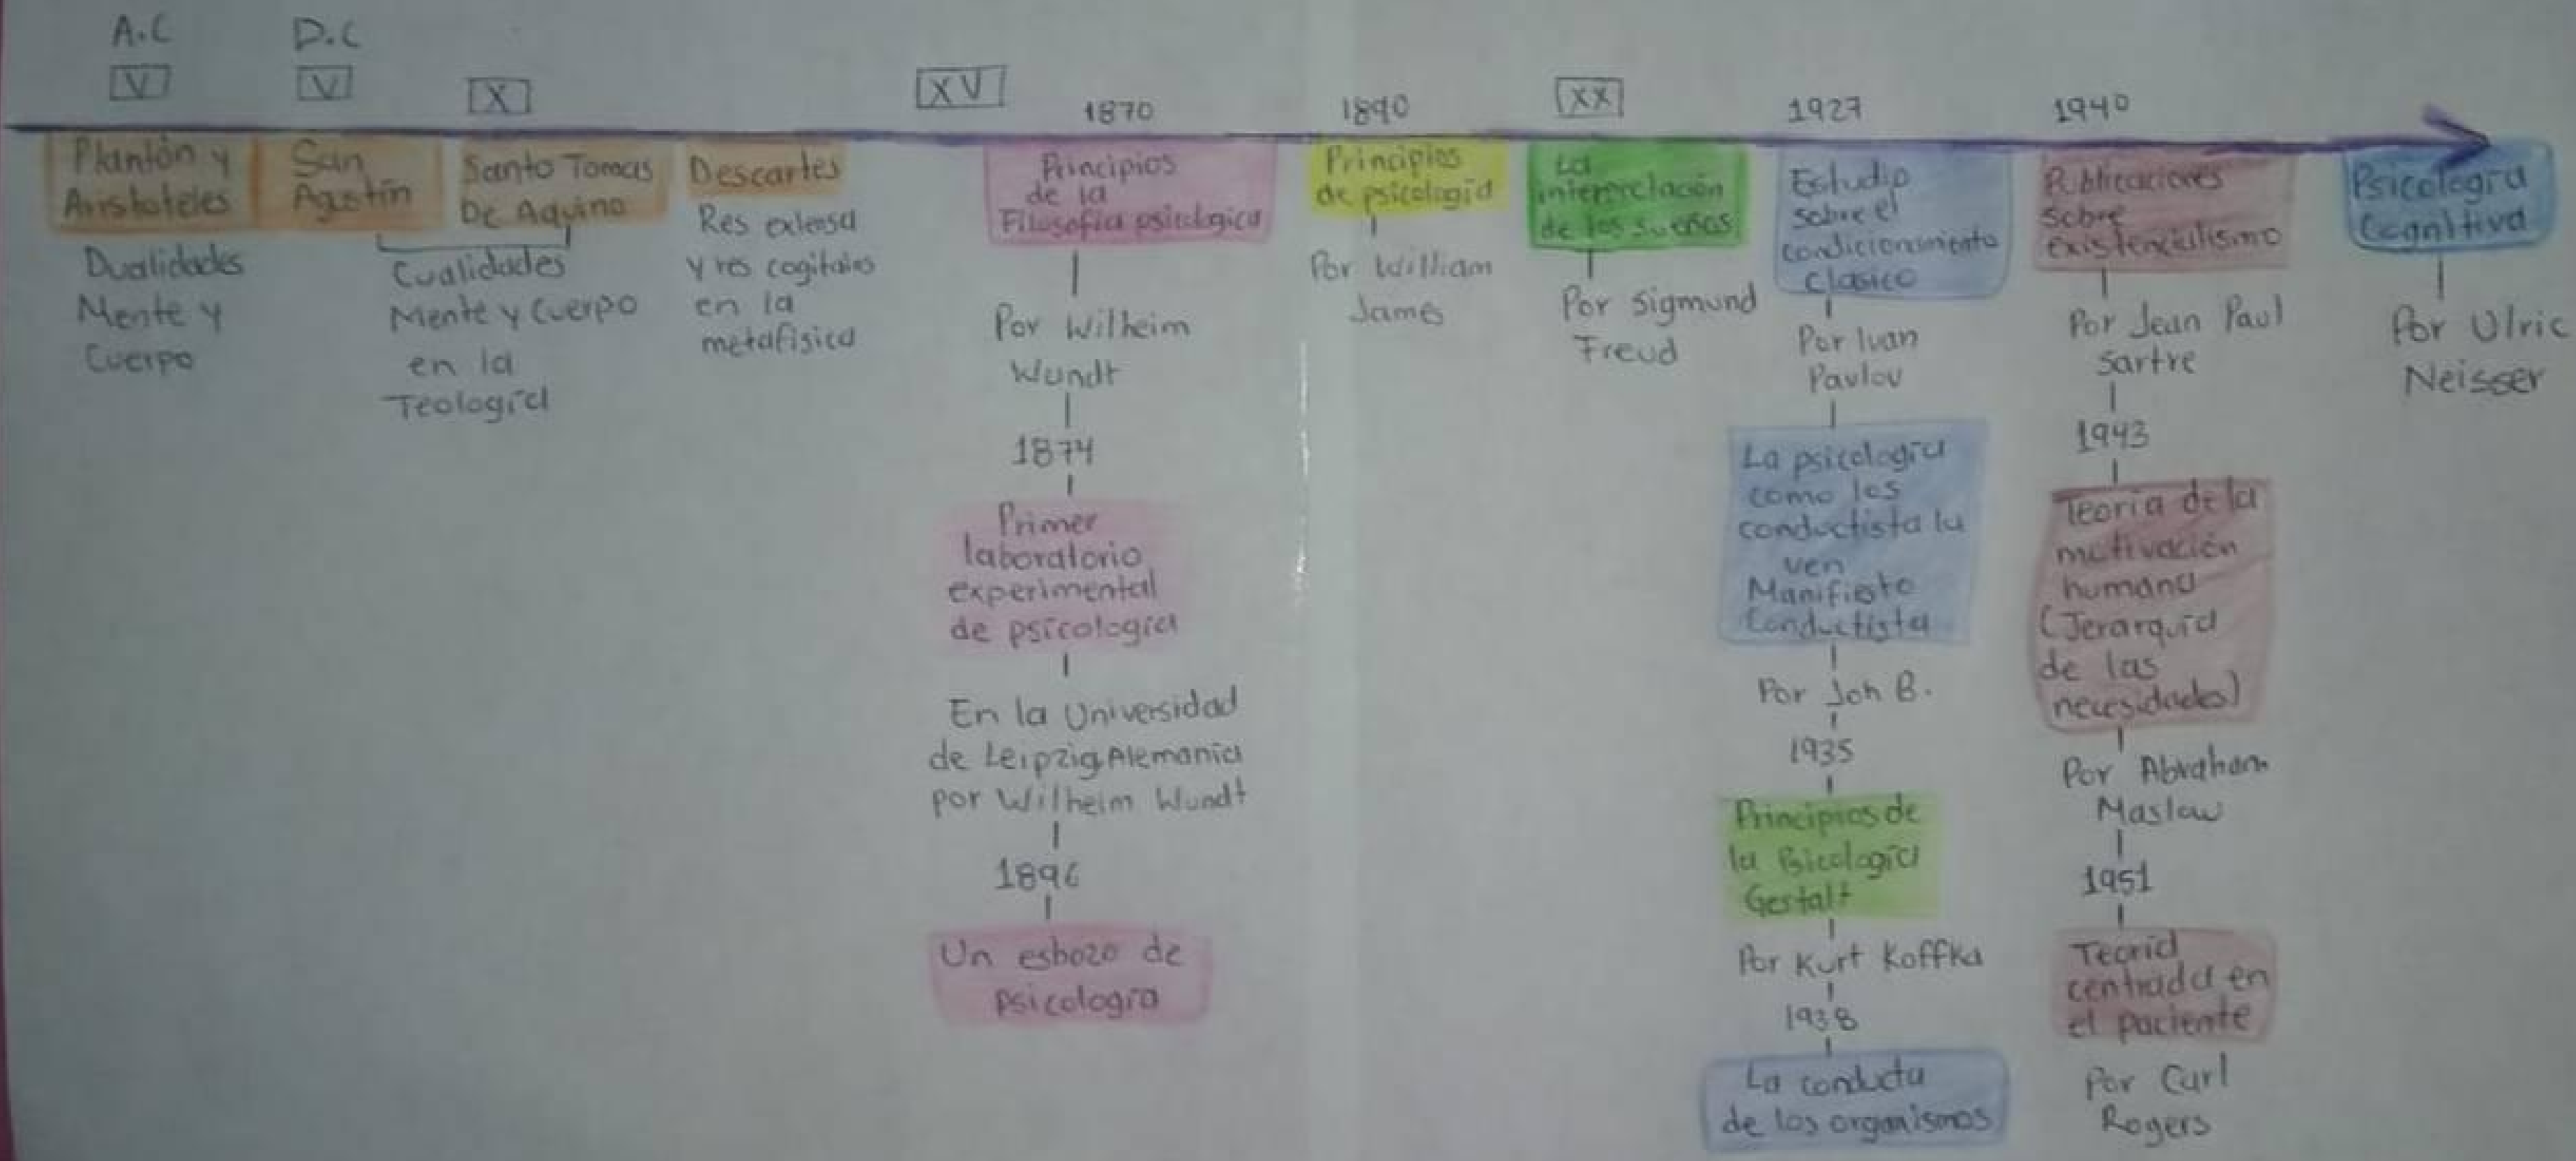 A.C
V
D.C
V
X
XV
1870
1890
XX
1927
1940
Plantón y
Aristoteles
Dualidades
Mente y
Cuerpo
San
Agustín
Santo Tomas
De Aquino
Cualidades
Mente y Cuerpo
en la
Teología
Descartes
Res extensa
y res cogitains
en la
metafisica
Principios
de la
Filosofia psicologica
Por Wilheim
Wundt
1874
Primer
laboratorio
experimental
de psicología
En la Universidad
de Leipzig Alemania
por Wilheim Wundt
1896
Un esbozo de
psicología
Principios
de psicología
Por William
James
La
interpretación
de los sueños
Por Sigmund
Freud
Estudio
sobre el
condicionamiento
Clasico
Por Ivan
Pavlov
La psicología
como los
conductista lu
ven
Manifiesto
Conductista
Por Joh B.
1935
Principios de
la Psicología
Gestalt
Por Kurt Koffka
1938
La conducta
de los organismos
Publicaciones
sobre
existencialismo
Por Jean Paul
Sartre
1943
Teoría de la
motivación
humana
(Jerarquía
de las
necesidades)
Por Abraham
Maslaw
1951
Teoría
centrada en
el paciente
Por Carl
Rogers
Psicología
Cognitiva
Por Ulric
Neisser